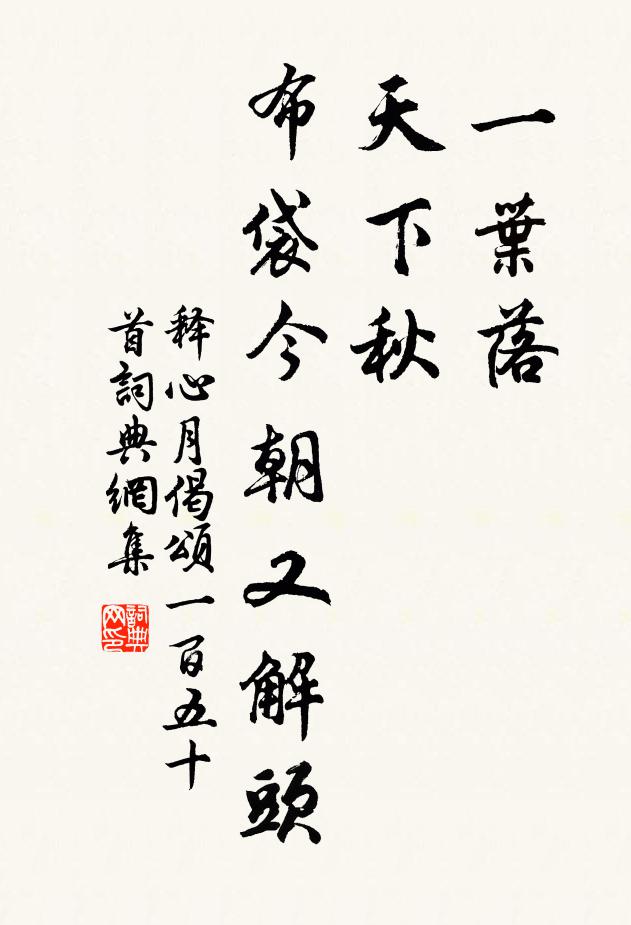 一葉落
天下秋
布袋今朝又解頭
释心月偈頌一百五十
首詞典網集
詞典网印